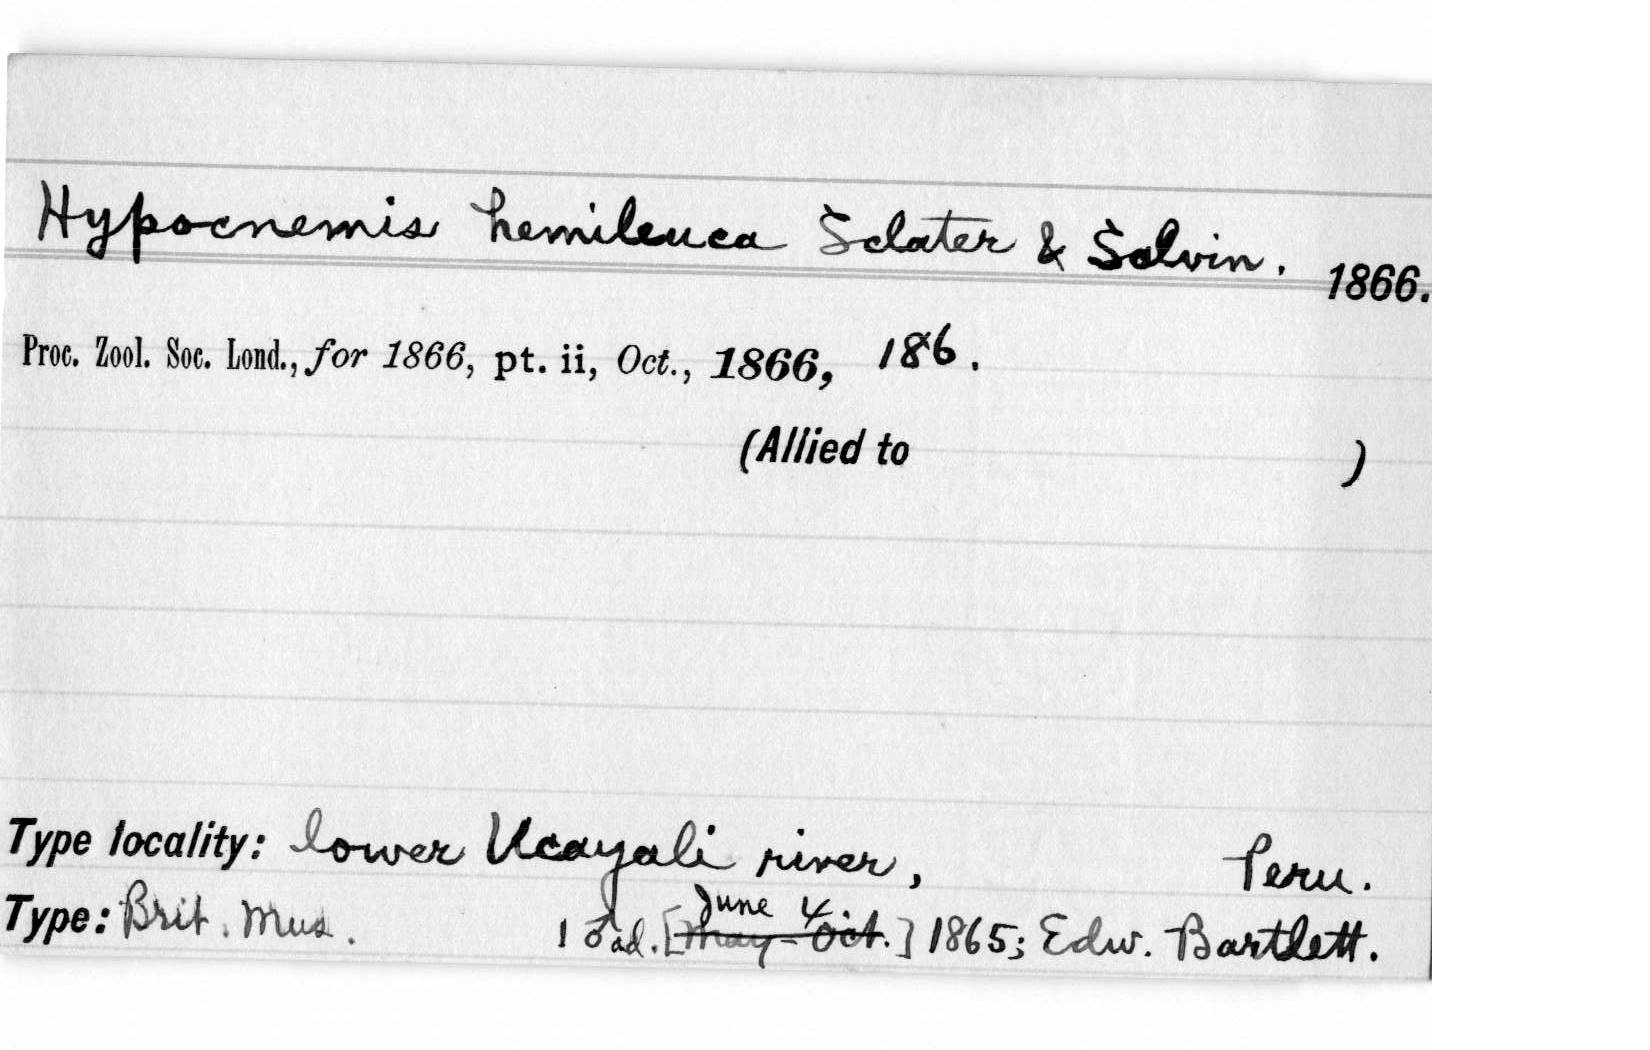 Hypocnemis hemileuca Sclater & Salvin. 1866.
Proc. Zool. Soc. Lond., for 1866, pt. ii, Oct., 1866, 186.
(Allied to )
Type locality: lower Ucayali river, Peru.
June 4
Type: Brit. Mus. 1 ♂ ad. [May-Oct.] 1865; Edw. Bartlett.